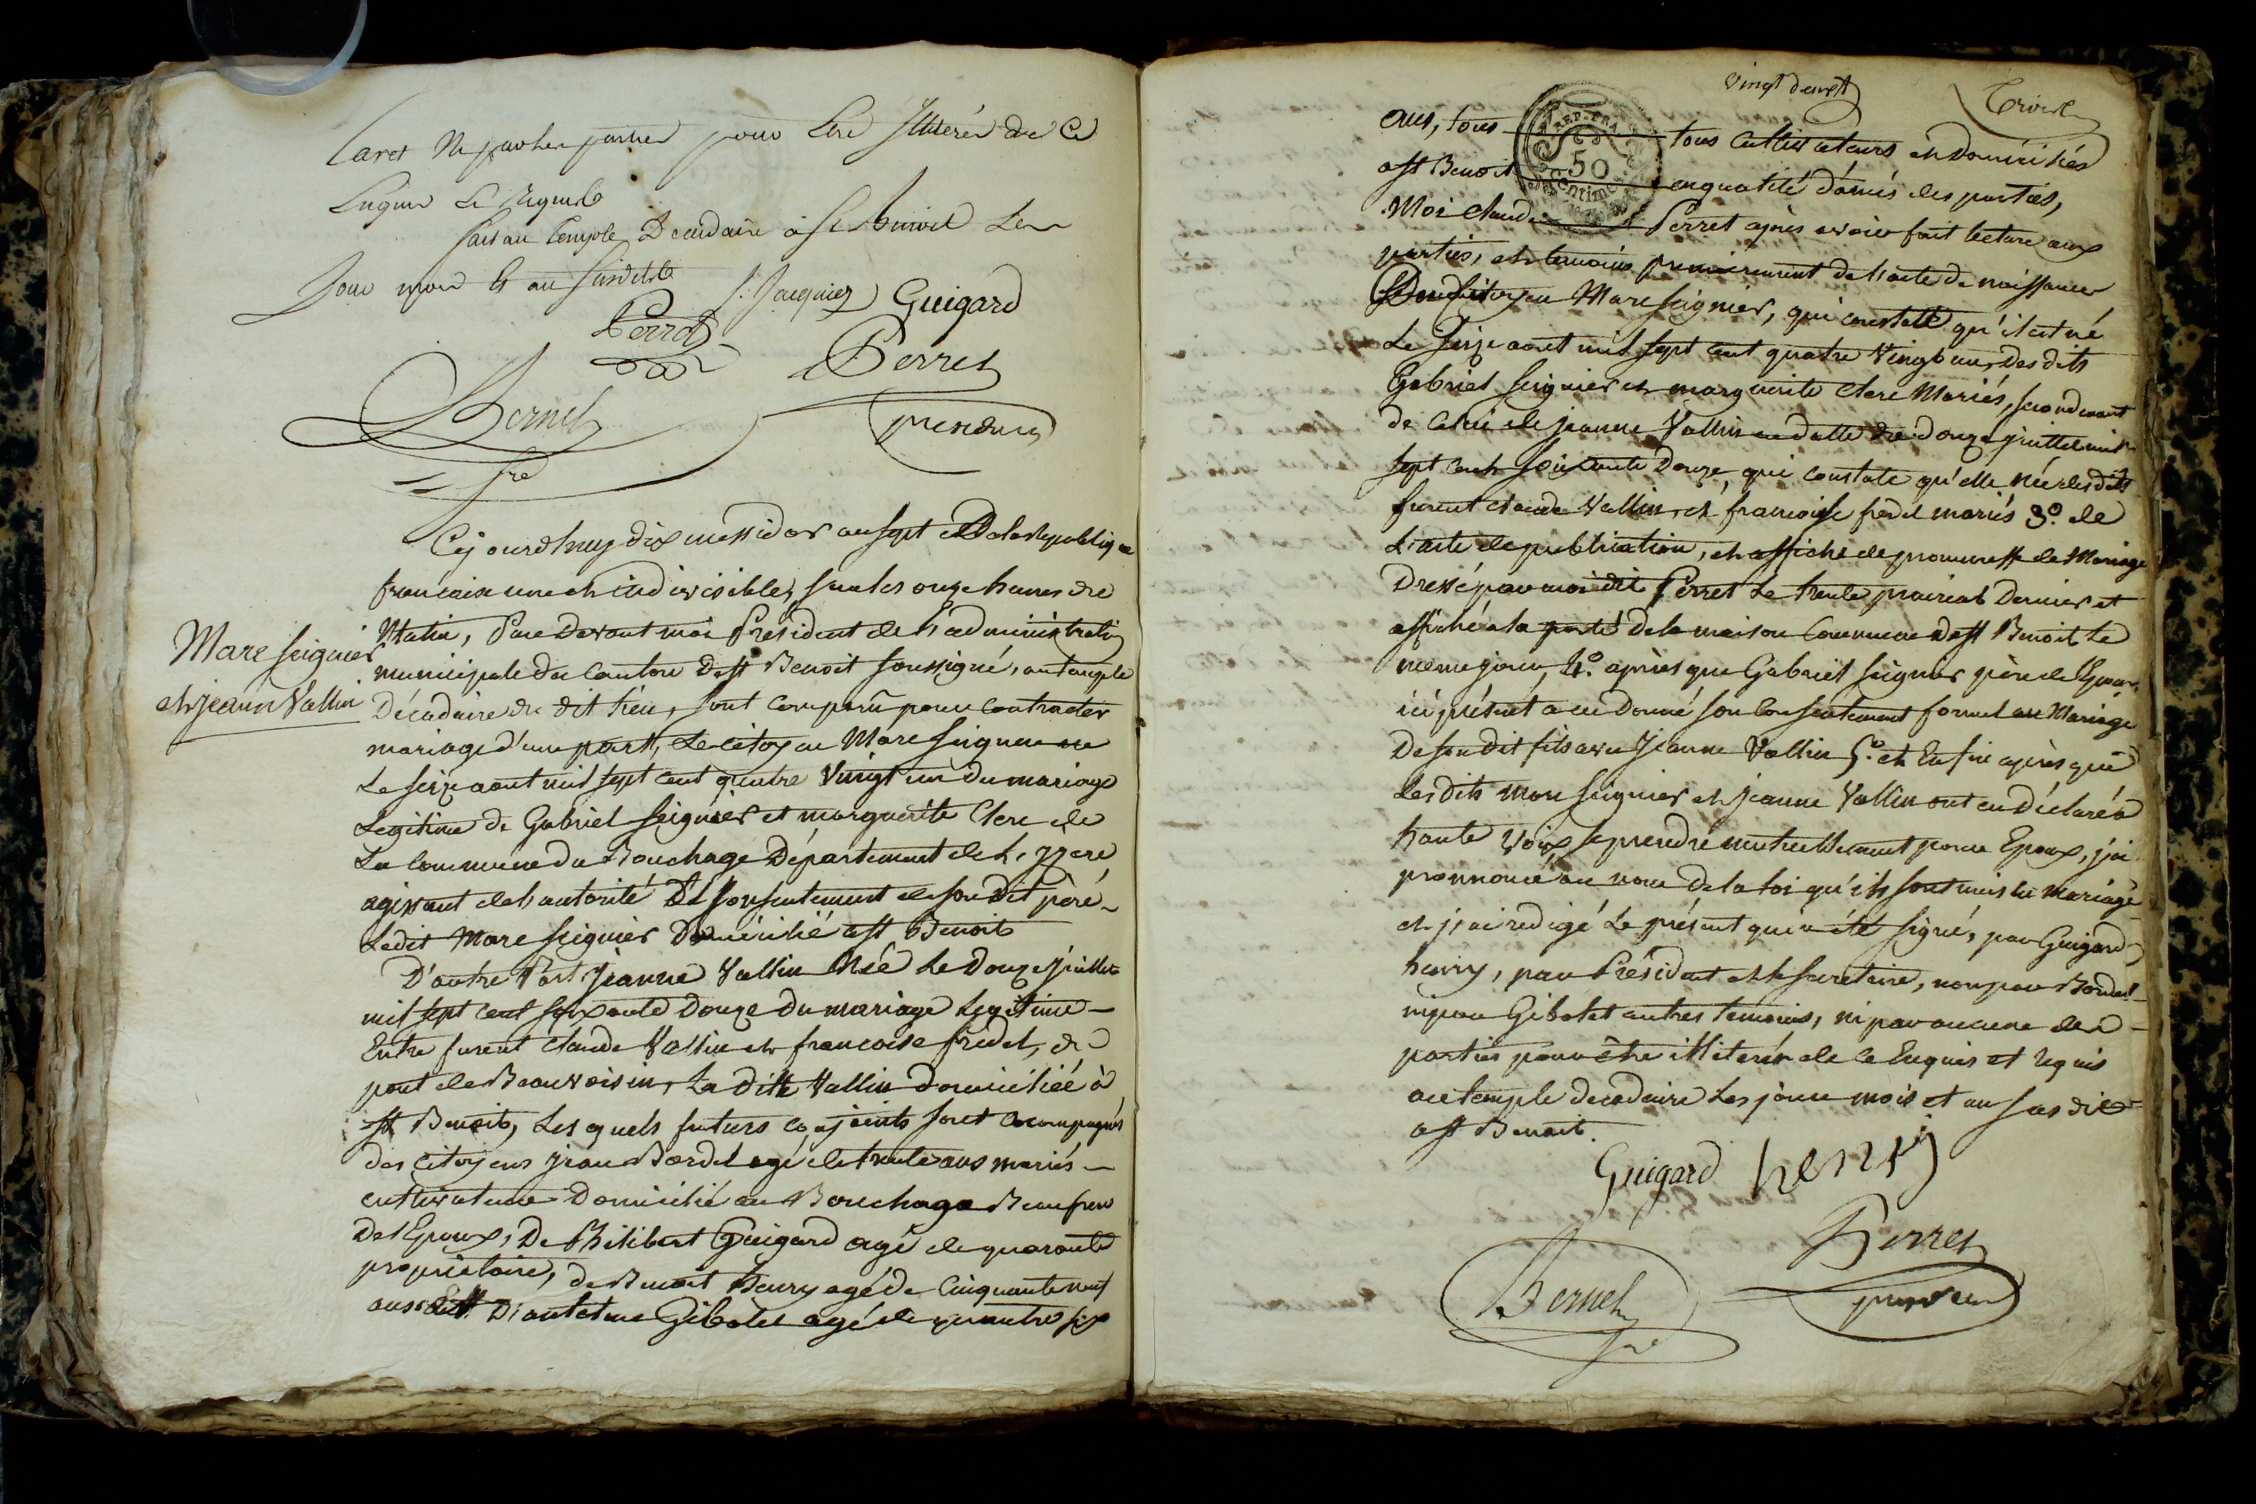 Caret ne par les parties pour être Illiterés de ce
Enquis Et requis
fait au temple Décadaire à St Benoit Les
Jour mois et an susdits
J. Jacquiez Guigard
Perrot
Perret
Bernet président
sre
Cejourd'huy dix messidor an sept de la Republique
francaise une et indivisible, sur les onze heures du
Matin, Pardevant moi Président de l'administration
Marc Seignier
municipale du canton de St Benoit soussigné, au temple
et jeanne Vallin
Décadaire du dit lieu, sont comparû pour contracter
mariage d'une part, Le citoyen Marc Seignier né
Le seize aout mil sept cent quatre Vingt un du mariage
Legitime de Gabriel Seignier et marguerite Clerc de
La Commune du Bouchage Département de L'yzere
agissant de l'autorité Et Consentement de son dit père
Ledit Marc Seignier Domicilié a St Benoit
D'autre Part Jeanne Vallin Née Le Douze Juillet
mil sept cent soixante Douze du mariage Legitime
Entre furent Claude Vallin et francoise fredet, du
pont de Beauvoisin, La ditte Vallin domiciliée à
St Benoit, Lesquels futurs conjoints sont accompagnés
des citoyens jean Bordel agé de trente ans mariés
cultivateur Domicilié au Bouchage Beaufrere
De l'Epoux, De Philibert Guigard agé de quarante
propriétaire, de Benoit henry agé de Cinquante neuf
ans Et D'antoine Gibolet agé de quarante six
vingt deux
ans, tous tous cultivateurs et Domiciliés
a St Benoit en qualité d'amis des parties,
Moi Claude Perret après avoir fait lecture aux
parties, et temoins premierement de l'acte de naissance
Du Citoyen Marc Seignier, qui constatte qu'il est né
Le Seize aout mil sept cent quatre Vingt un, Des dits
Gabriel Seignier et marguerite Clerc Mariés, secondement
de celui de jeanne Vallin en datte du douze juillet mil
sept cent soixante Douze, qui constate qu'elle née desdits
furent claude Vallin et francoise fredet mariés 3º. de
L'acte de publication, et affiche de promesse de Mariage
Dressé par moi dit Perret Le trente prairial Dernier et
affiché a la porte de la maison Commune de St Benoit le
meme jour, 4º. après que Gabriel Seignier père de l'Epoux
ici présent a eu Donné son Consentement formel au Mariage
De son dit fils avec Jeanne Vallin 5º. et Enfin après que
Les dits Marc Seignier et jeanne Vallin ont eu Déclaré à
haute Voix se prendre mutuellement pour Epoux, j'ai
prononcé au nom de la loi qu'ils sont unis en mariage
et j'ai redigé Le présent qui a été signé, par Guigard
henry, par Président et le secretaire, non par Bordel
ni par Gibolet autres temoins, ni par aucune des
parties pour être illiterés de ce Enquis et requis
au temple decadaire Les jour mois et an susdit
a St Benoit.
Guigard henry
Perret
Bernet président
sre
REP. FRA.
50
Centimes